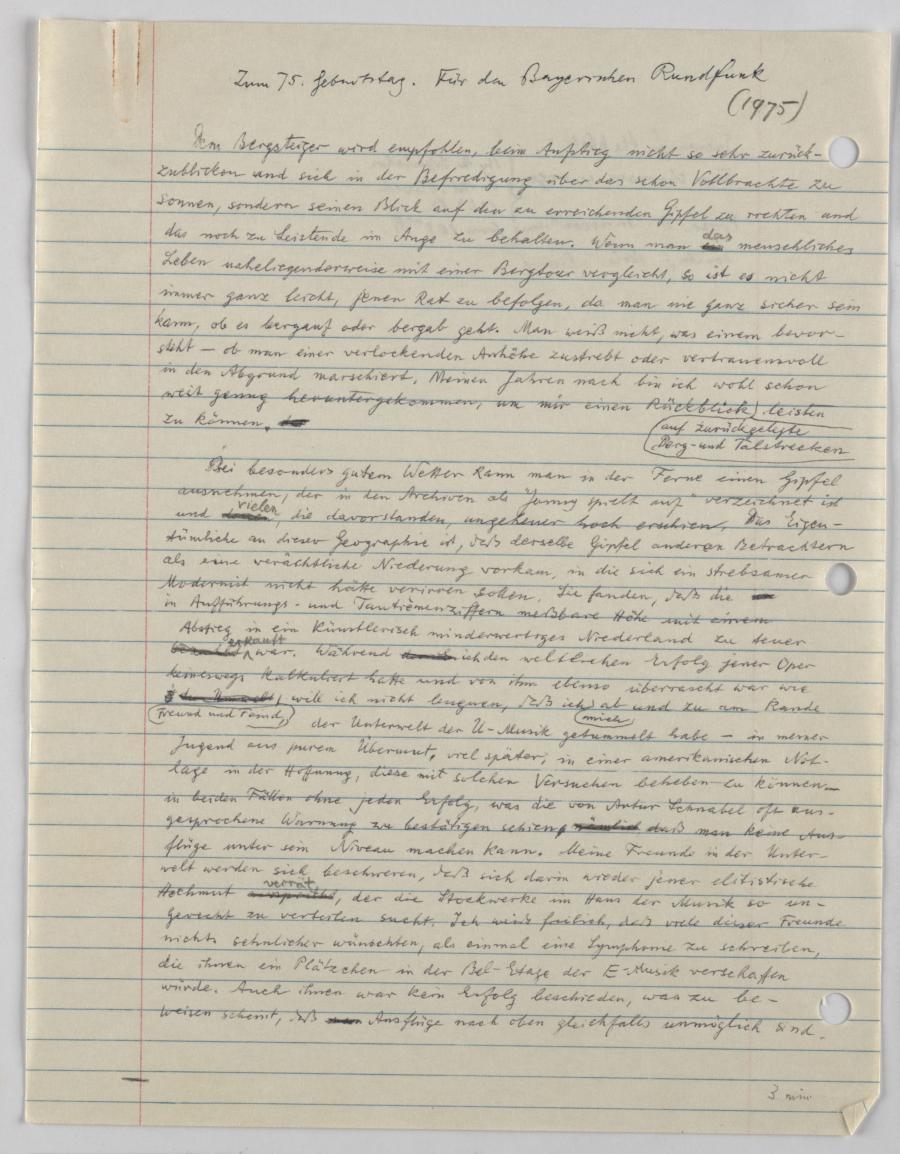 Zum 75. Geburtstag. Für den Bayerischen Rundfunk
(1975)
Dem Bergsteiger wird empfohlen, beim Aufstieg nicht so sehr zurück-
zublicken und sich in der Befriedigung über das schon Vollbrachte zu
sonnen, sondern seinen Blick auf den zu erreichenden Gipfel zu richten und
das noch zu Leistende im Auge zu behalten. Wenn man das menschliches
Leben naheliegenderweise mit einer Bergtour vergleicht, so ist es nicht
immer ganz leicht, jenen Rat zu befolgen, da man nie ganz sicher sein
kann, ob es bergauf oder bergab geht. Man weiß nicht, was einem bevor-
steht – ob man einer verlockenden Anhöhe zustrebt oder vertrauensvoll
in den Abgrund marschiert. Meinen Jahren nach bin ich wohl schon
weit genug heruntergekommen, um mir einen Rückblick leisten
zu können.
auf zurückgelegte
Berg- und Talstrecken
Bei besonders gutem Wetter kann man in der Ferne einen Gipfel
ausnehmen, der in den Archiven als "Jonny spielt auf" verzeichnet ist
und vielen, die davorstanden, ungeheuer hoch erschien. Das Eigen-
tümliche an dieser Geographie ist, daß derselbe Gipfel anderen Betrachtern
als eine verächtliche Niederung vorkam, in die sich ein strebsamer
Modernist nicht hätte verirren sollen. Sie fanden, daß die
in Aufführungs- und Tantiemenziffern meßbare Höhe mit einem
Abstieg in ein künstlerisch minderwertiges Niederland zu teuer
erkauft war. Während ich den weltlichen Erfolg jener Oper
keineswegs kalkuliert hatte und von ihm ebenso überrascht war wie
Freund und Feind, will ich nicht leugnen, daß ich mich ab und zu am Rande
der Unterwelt der U-Musik getummelt habe – in meiner
Jugend aus purem Übermut, viel später, in einer amerikanischen Not-
lage in der Hoffnung, diese mit solchen Versuchen beheben zu können –
in beiden Fällen ohne jeden Erfolg, was die von Artur Schnabel oft aus-
gesprochene Warnung zu bestätigen schien, daß man keine Aus-
flüge unter sein Niveau machen kann. Meine Freunde in der Unter-
welt werden sich beschweren, daß sich darin wieder jener elitistische
Hochmut verrät, der die Stockwerke im Haus der Musik so un-
gerecht zu verteilen sucht. Ich weiß freilich, daß viele dieser Freunde
nichts sehnlicher wünschten, als einmal eine Symphonie zu schreiben,
die ihnen ein Plätzchen in der Bel-Etage der E-Musik verschaffen
würde. Auch ihnen war kein Erfolg beschieden, was zu be-
weisen scheint, daß Ausflüge nach oben gleichfalls unmöglich sind.
3 min